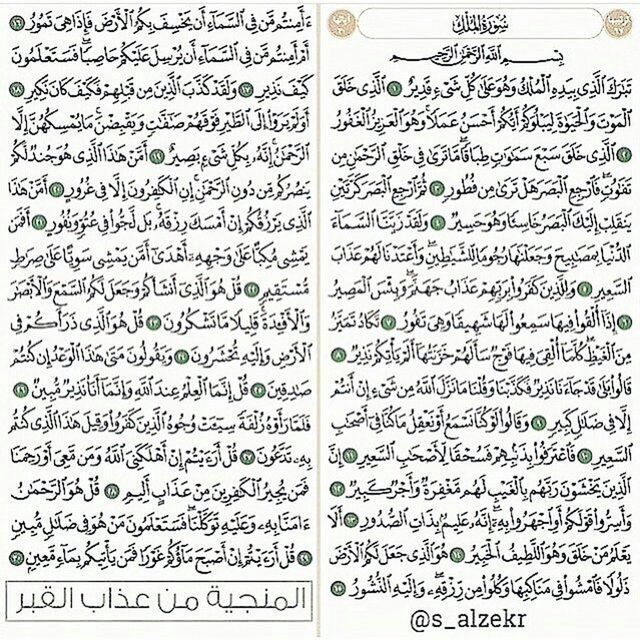 سُورَةُ المُلْكِ
بِسْمِ اللَّهِ الرَّحْمَٰنِ الرَّحِيمِ
تَبَٰرَكَ ٱلَّذِى بِيَدِهِ ٱلْمُلْكُ وَهُوَ عَلَىٰ كُلِّ شَىْءٍ قَدِيرٌ ١ ٱلَّذِى خَلَقَ
ٱلْمَوْتَ وَٱلْحَيَوٰةَ لِيَبْلُوَكُمْ أَيُّكُمْ أَحْسَنُ عَمَلًا وَهُوَ ٱلْعَزِيزُ ٱلْغَفُورُ
٢ ٱلَّذِى خَلَقَ سَبْعَ سَمَٰوَٰتٍ طِبَاقًا مَّا تَرَىٰ فِى خَلْقِ ٱلرَّحْمَٰنِ مِن
تَفَٰوُتٍ فَٱرْجِعِ ٱلْبَصَرَ هَلْ تَرَىٰ مِن فُطُورٍ ٣ ثُمَّ ٱرْجِعِ ٱلْبَصَرَ كَرَّتَيْنِ
يَنقَلِبْ إِلَيْكَ ٱلْبَصَرُ خَاسِئًا وَهُوَ حَسِيرٌ ٤ وَلَقَدْ زَيَّنَّا ٱلسَّمَآءَ
ٱلدُّنْيَا بِمَصَٰبِيحَ وَجَعَلْنَٰهَا رُجُومًا لِّلشَّيَٰطِينِ وَأَعْتَدْنَا لَهُمْ عَذَابَ
ٱلسَّعِيرِ ٥ وَلِلَّذِينَ كَفَرُوا۟ بِرَبِّهِمْ عَذَابُ جَهَنَّمَ وَبِئْسَ ٱلْمَصِيرُ
٦ إِذَآ أُلْقُوا۟ فِيهَا سَمِعُوا۟ لَهَا شَهِيقًا وَهِىَ تَفُورُ ٧ تَكَادُ تَمَيَّزُ
مِنَ ٱلْغَيْظِ كُلَّمَآ أُلْقِىَ فِيهَا فَوْجٌ سَأَلَهُمْ خَزَنَتُهَآ أَلَمْ يَأْتِكُمْ نَذِيرٌ ٨
قَالُوا۟ بَلَىٰ قَدْ جَآءَنَا نَذِيرٌ فَكَذَّبْنَا وَقُلْنَا مَا نَزَّلَ ٱللَّهُ مِن شَىْءٍ إِنْ أَنتُمْ
إِلَّا فِى ضَلَٰلٍ كَبِيرٍ ٩ وَقَالُوا۟ لَوْ كُنَّا نَسْمَعُ أَوْ نَعْقِلُ مَا كُنَّا فِىٓ أَصْحَٰبِ
ٱلسَّعِيرِ ١٠ فَٱعْتَرَفُوا۟ بِذَنۢبِهِمْ فَسُحْقًا لِّأَصْحَٰبِ ٱلسَّعِيرِ ١١ إِنَّ
ٱلَّذِينَ يَخْشَوْنَ رَبَّهُم بِٱلْغَيْبِ لَهُم مَّغْفِرَةٌ وَأَجْرٌ كَبِيرٌ ١٢
وَأَسِرُّوا۟ قَوْلَكُمْ أَوِ ٱجْهَرُوا۟ بِهِۦٓ إِنَّهُۥ عَلِيمٌۢ بِذَاتِ ٱلصُّدُورِ ١٣ أَلَا
يَعْلَمُ مَنْ خَلَقَ وَهُوَ ٱللَّطِيفُ ٱلْخَبِيرُ ١٤ هُوَ ٱلَّذِى جَعَلَ لَكُمُ ٱلْأَرْضَ
ذَلُولًا فَٱمْشُوا۟ فِى مَنَاكِبِهَا وَكُلُوا۟ مِن رِّزْقِهِۦ وَإِلَيْهِ ٱلنُّشُورُ ١٥
@s_alzekr
ءَأَمِنتُم مَّن فِى ٱلسَّمَآءِ أَن يَخْسِفَ بِكُمُ ٱلْأَرْضَ فَإِذَا هِىَ تَمُورُ ١٦
أَمْ أَمِنتُم مَّن فِى ٱلسَّمَآءِ أَن يُرْسِلَ عَلَيْكُمْ حَاصِبًا فَسَتَعْلَمُونَ
كَيْفَ نَذِيرِ ١٧ وَلَقَدْ كَذَّبَ ٱلَّذِينَ مِن قَبْلِهِمْ فَكَيْفَ كَانَ نَكِيرِ ١٨
أَوَلَمْ يَرَوْا۟ إِلَى ٱلطَّيْرِ فَوْقَهُمْ صَٰٓفَّٰتٍ وَيَقْبِضْنَ مَا يُمْسِكُهُنَّ إِلَّا
ٱلرَّحْمَٰنُ إِنَّهُۥ بِكُلِّ شَىْءٍۭ بَصِيرٌ ١٩ أَمَّنْ هَٰذَا ٱلَّذِى هُوَ جُندٌ لَّكُمْ
يَنصُرُكُم مِّن دُونِ ٱلرَّحْمَٰنِ إِنِ ٱلْكَٰفِرُونَ إِلَّا فِى غُرُورٍ ٢٠ أَمَّنْ هَٰذَا
ٱلَّذِى يَرْزُقُكُمْ إِنْ أَمْسَكَ رِزْقَهُۥ بَل لَّجُّوا۟ فِى عُتُوٍّ وَنُفُورٍ ٢١ أَفَمَن
يَمْشِى مُكِبًّا عَلَىٰ وَجْهِهِۦٓ أَهْدَىٰٓ أَمَّن يَمْشِى سَوِيًّا عَلَىٰ صِرَٰطٍ
مُّسْتَقِيمٍ ٢٢ قُلْ هُوَ ٱلَّذِىٓ أَنشَأَكُمْ وَجَعَلَ لَكُمُ ٱلسَّمْعَ وَٱلْأَبْصَٰرَ
وَٱلْأَفْـِٔدَةَ قَلِيلًا مَّا تَشْكُرُونَ ٢٣ قُلْ هُوَ ٱلَّذِى ذَرَأَكُمْ فِى
ٱلْأَرْضِ وَإِلَيْهِ تُحْشَرُونَ ٢٤ وَيَقُولُونَ مَتَىٰ هَٰذَا ٱلْوَعْدُ إِن كُنتُمْ
صَٰدِقِينَ ٢٥ قُلْ إِنَّمَا ٱلْعِلْمُ عِندَ ٱللَّهِ وَإِنَّمَآ أَنَا۠ نَذِيرٌ مُّبِينٌ ٢٦
فَلَمَّا رَأَوْهُ زُلْفَةً سِيٓـَٔتْ وُجُوهُ ٱلَّذِينَ كَفَرُوا۟ وَقِيلَ هَٰذَا ٱلَّذِى كُنتُم
بِهِۦ تَدَّعُونَ ٢٧ قُلْ أَرَءَيْتُمْ إِنْ أَهْلَكَنِىَ ٱللَّهُ وَمَن مَّعِىَ أَوْ رَحِمَنَا
فَمَن يُجِيرُ ٱلْكَٰفِرِينَ مِنْ عَذَابٍ أَلِيمٍ ٢٨ قُلْ هُوَ ٱلرَّحْمَٰنُ
ءَامَنَّا بِهِۦ وَعَلَيْهِ تَوَكَّلْنَا فَسَتَعْلَمُونَ مَنْ هُوَ فِى ضَلَٰلٍ مُّبِينٍ
٢٩ قُلْ أَرَءَيْتُمْ إِنْ أَصْبَحَ مَآؤُكُمْ غَوْرًا فَمَن يَأْتِيكُم بِمَآءٍ مَّعِينٍۭ ٣٠
المنجية من عذاب القبر